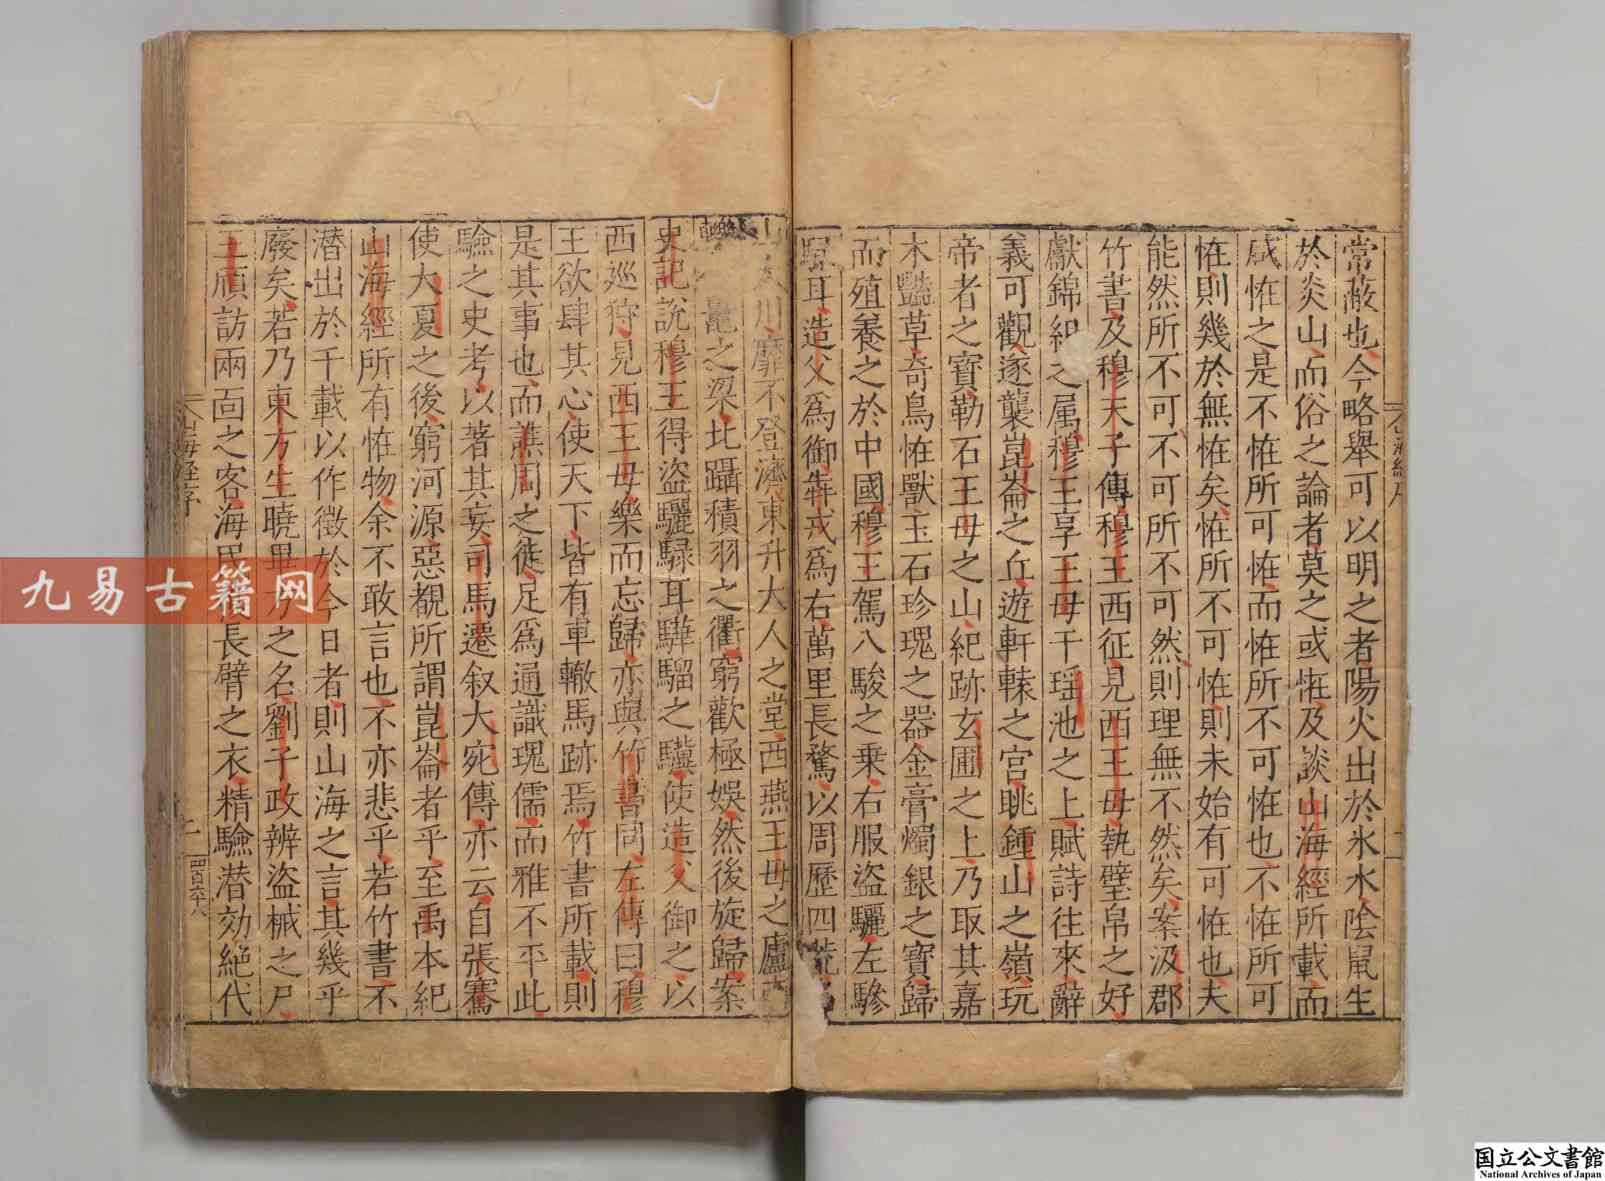 常蔽也今略舉可以明之者陽火出於氷水陰䑕生
於炎山而俗之論者莫之或恠及談山海經所載而
咸恠之是不恠所可恠而恠所不可恠也不恠所可
恠則幾於無恠矣恠所不可恠則未始有可恠也夫
能然所不可不可所不可然則理無不然矣案汲郡
竹書及穆天子傳穆王西征見西王母執璧帛之好
獻錦組之属穆王享王母于瑶池之上賦詩往來辭
義可觀遂襲崑崙之丘遊軒轅之宮眺鍾山之嶺玩
帝者之寶勒石王母之山紀跡玄圃之上乃取其嘉
木豔草奇鳥恠獸玉石珍瑰之器金膏燭銀之寶歸
而殖養之於中國穆王駕八駿之乗右服盗驪左驂
騄耳造父爲御犇戎爲右萬里長騖以周歷四荒名
山大川靡不登濟東升大人之堂西燕王母之廬南
轢黿鼉之梁北躡積羽之衢窮歡極娛然後旋歸案
史記說穆王得盗驪騄耳驊騮之驥使造父御之以
西巡狩見西王母樂而忘歸亦與竹書同左傳曰穆
王欲肆其心使天下皆有車轍馬跡焉竹書所載則
是其事也而譙周之徒足爲通識瑰儒而雅不平此
驗之史考以著其妄司馬遷叙大宛傳亦云自張騫
使大夏之後窮河源惡覩所謂崑崙者乎至禹本紀
山海經所有恠物余不敢言也不亦悲乎若竹書不
潜出於千載以作徵於今日者則山海之言其幾乎
廢矣若乃東方生曉畢方之名劉子政辨盗械之尸
王頎訪兩靣之客海民獲長臂之衣精驗潜効絶代
山海經序
山海經序
二
四百六十八
九易古籍网
国立公文書館
National Archives of Japan